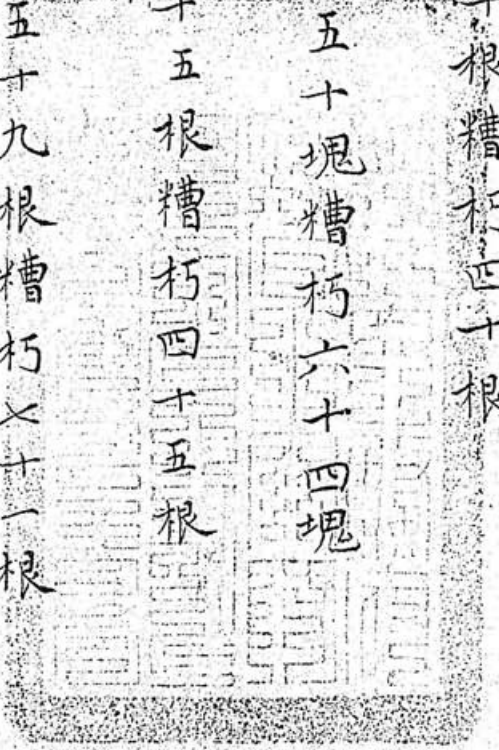 十根糟朽四十根
五十塊糟朽六十四塊
十五根糟朽四十五根
五十九根糟朽七十一根